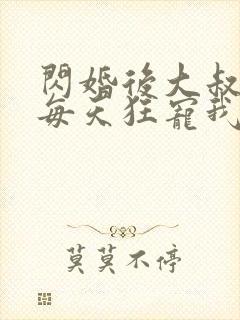 閃婚後大叔
每天狂寵我
莫莫不停